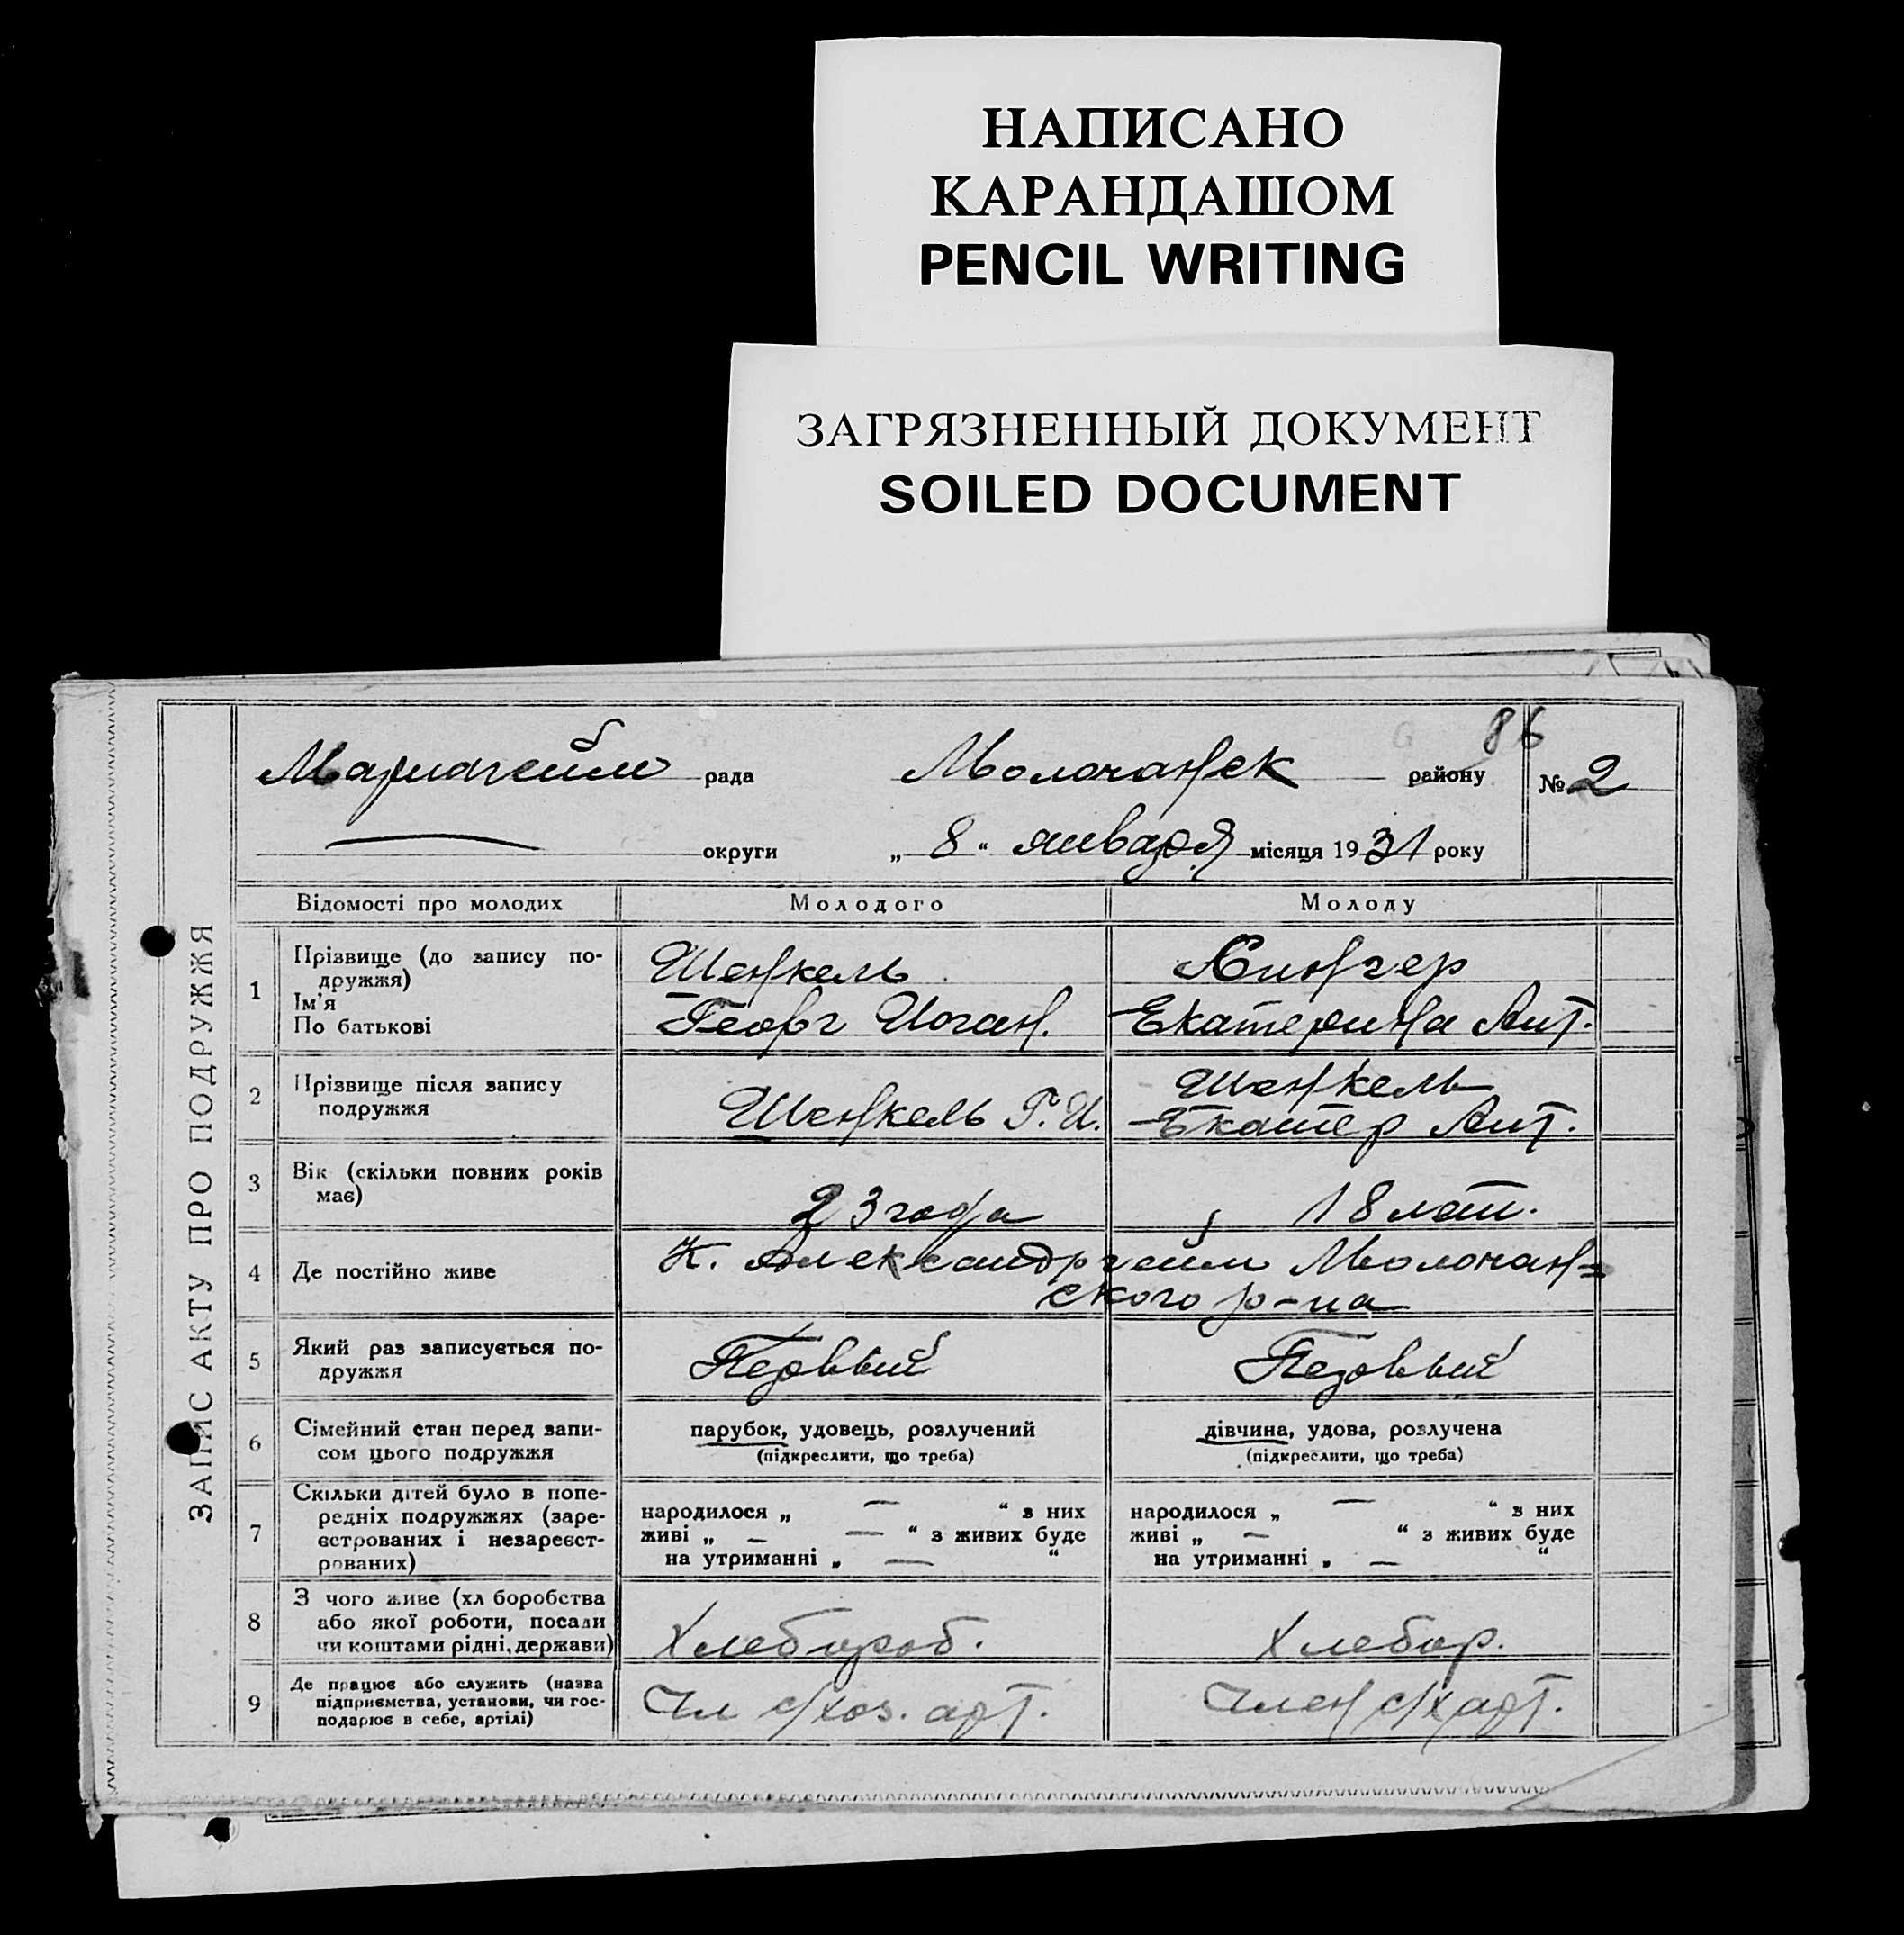 НАПИСАНО
КАРАНДАШОМ
PENCIL WRITING
ЗАГРЯЗНЕННЫЙ ДОКУМЕНТ
SOILED DOCUMENT
86
ЗАПИС АКТУ ПРО ПОДРУЖЖЯ
Мариагейм рада Молочанск району № 2
округи „ 8 “ января місяця 1931 року
Відомості про молодих Молодого Молоду
1 Прізвище (до запису по-
дружжя)
Ім'я
По батькові
Шенкель
Георг Иоган.
Екатерина Ант.
2 Прізвище після запису
подружжя
Шенкель Г. И.
Шенкель
Екатер Ант.
3 Вік (скільки повних років
має)
23 года
18 лет.
4 Де постійно живе
К. Александргейм Молочан=
ского р-на
5 Який раз записується по-
дружжя
Первый
Первый
6 Сімейний стан перед запи-
сом цього подружжя
парубок, удовець, розлучений
(підкреслити, що треба)
дівчина, удова, розлучена
(підкреслити, що треба)
7 Скільки дітей було в попе-
редніх подружжях (заре-
єстрованих і незареєст-
рованих)
народилося „ — “ з них
живі „ — — “ з живих буде
на утриманні „ — “
народилося „ — “ з них
живі „ — “ з живих буде
на утриманні „ — “
8 З чого живе (хл боробства
або якої роботи, посади
чи коштами рідні, держави)
Хлебороб.
Хлебор.
9 Де працює або служить (назва
підприємства, установи, чи гос-
подарює в себе, артілі)
Чл с/хоз. арт.
Член с/х арт.